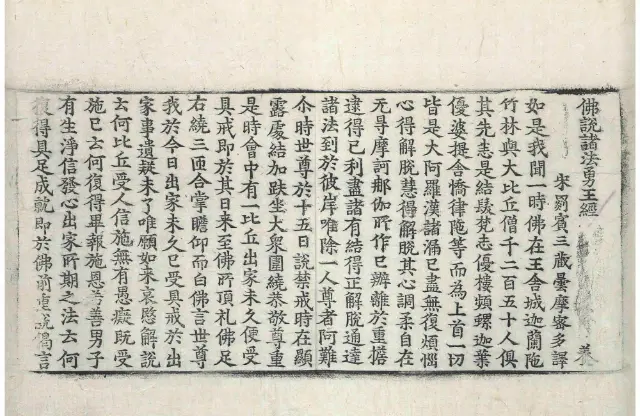 佛說諸法勇王經
宋罽賓三藏曇摩蜜多譯
如是我聞一時佛在王舍城迦蘭陁
竹林與大比丘僧千二百五十人俱
其先志是結髮梵志優樓頻螺迦葉
優婆提舍憍律陁等而為上首一切
皆是大阿羅漢諸漏已盡無復煩惱
心得解脫慧得解脫其心調柔自在
无㝵摩訶那伽所作已辦離於重擔
逮得已利盡諸有結得正解脫通達
諸法到於彼岸唯除一人尊者阿難
尒時世尊於十五日說禁戒時在顯
露處結加趺坐大衆圍繞恭敬尊重
是時會中有一比丘出家未久便受
具戒即於其日来至佛所頂礼佛足
右繞三匝合掌瞻仰而白佛言世尊
我於今日出家未久已受具戒於出
家事遺未了唯願如来哀愍解說
云何比丘受人信施無有愚癡既受
施已云何復得畢報施恩善男子
有生淨信發心出家所期之法云何
復得具足成就即於佛前重說偈言